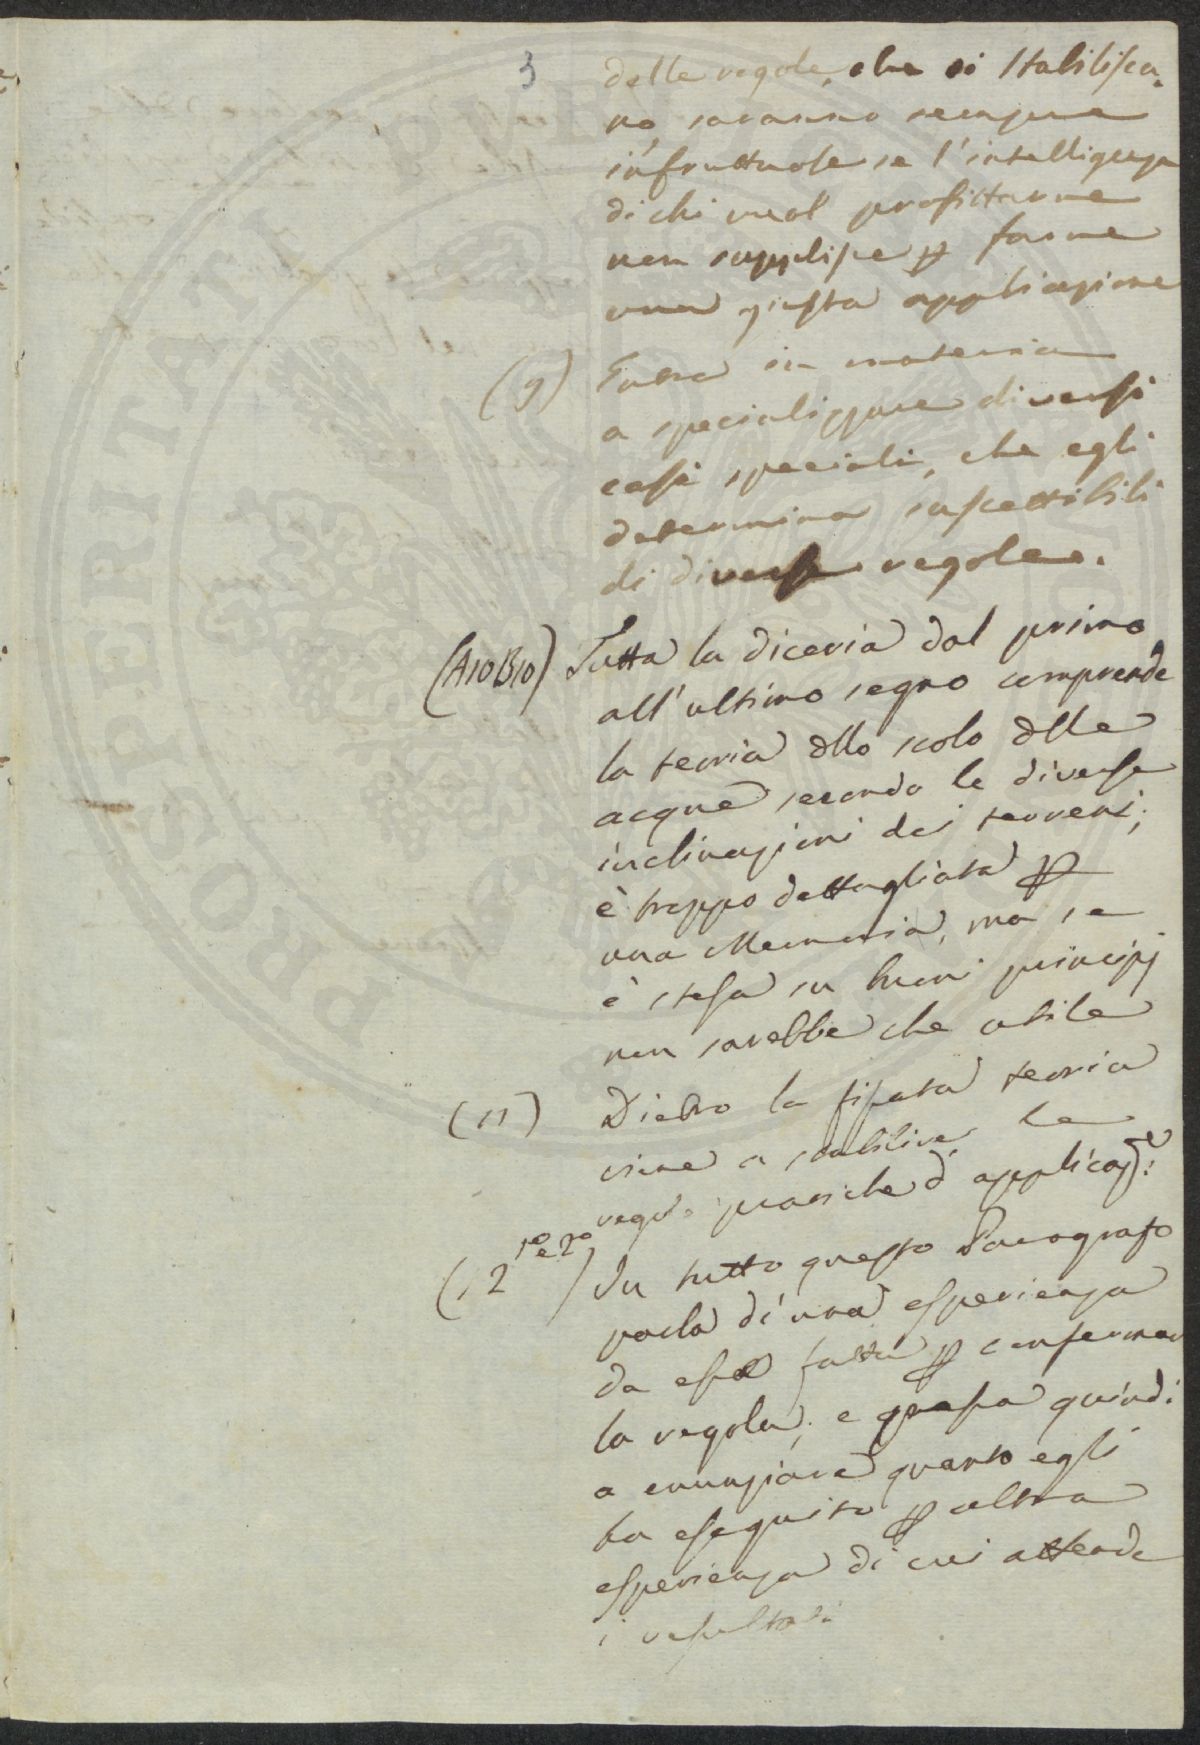 3
delle regole, che si stabilisca-
no, saranno sempre
infruttuose se l'intelligenza
di chi vuol profittarne
non supplisce p farne
una giusta applicazione
(9) Entra in materia
a specializzare diversi
casi speciali, che egli
determina suscettibili
di diverse regole.
(A10B10) Tutta la diceria dal primo
all'ultimo segno comprende
la teoria dllo scolo dlle
acque secondo le diverse
inclinazioni dei terreni;
è troppo dettagliata p
una Memoria, ma se
è stesa su buoni principj
non sarebbe che utile
(11) Dietro la fissata teoria
viene a stabilire le
regole pratiche d applicaz.e
(12 1o e 2o) In tutto questo Paragrafo
parla di una esperienza
da esso fatta p confermar
la regola, e passa quindi
a enunziare quanto egli
ha eseguito p altra
esperienza di cui attende
i resultati
PROSPERITATI PUBL